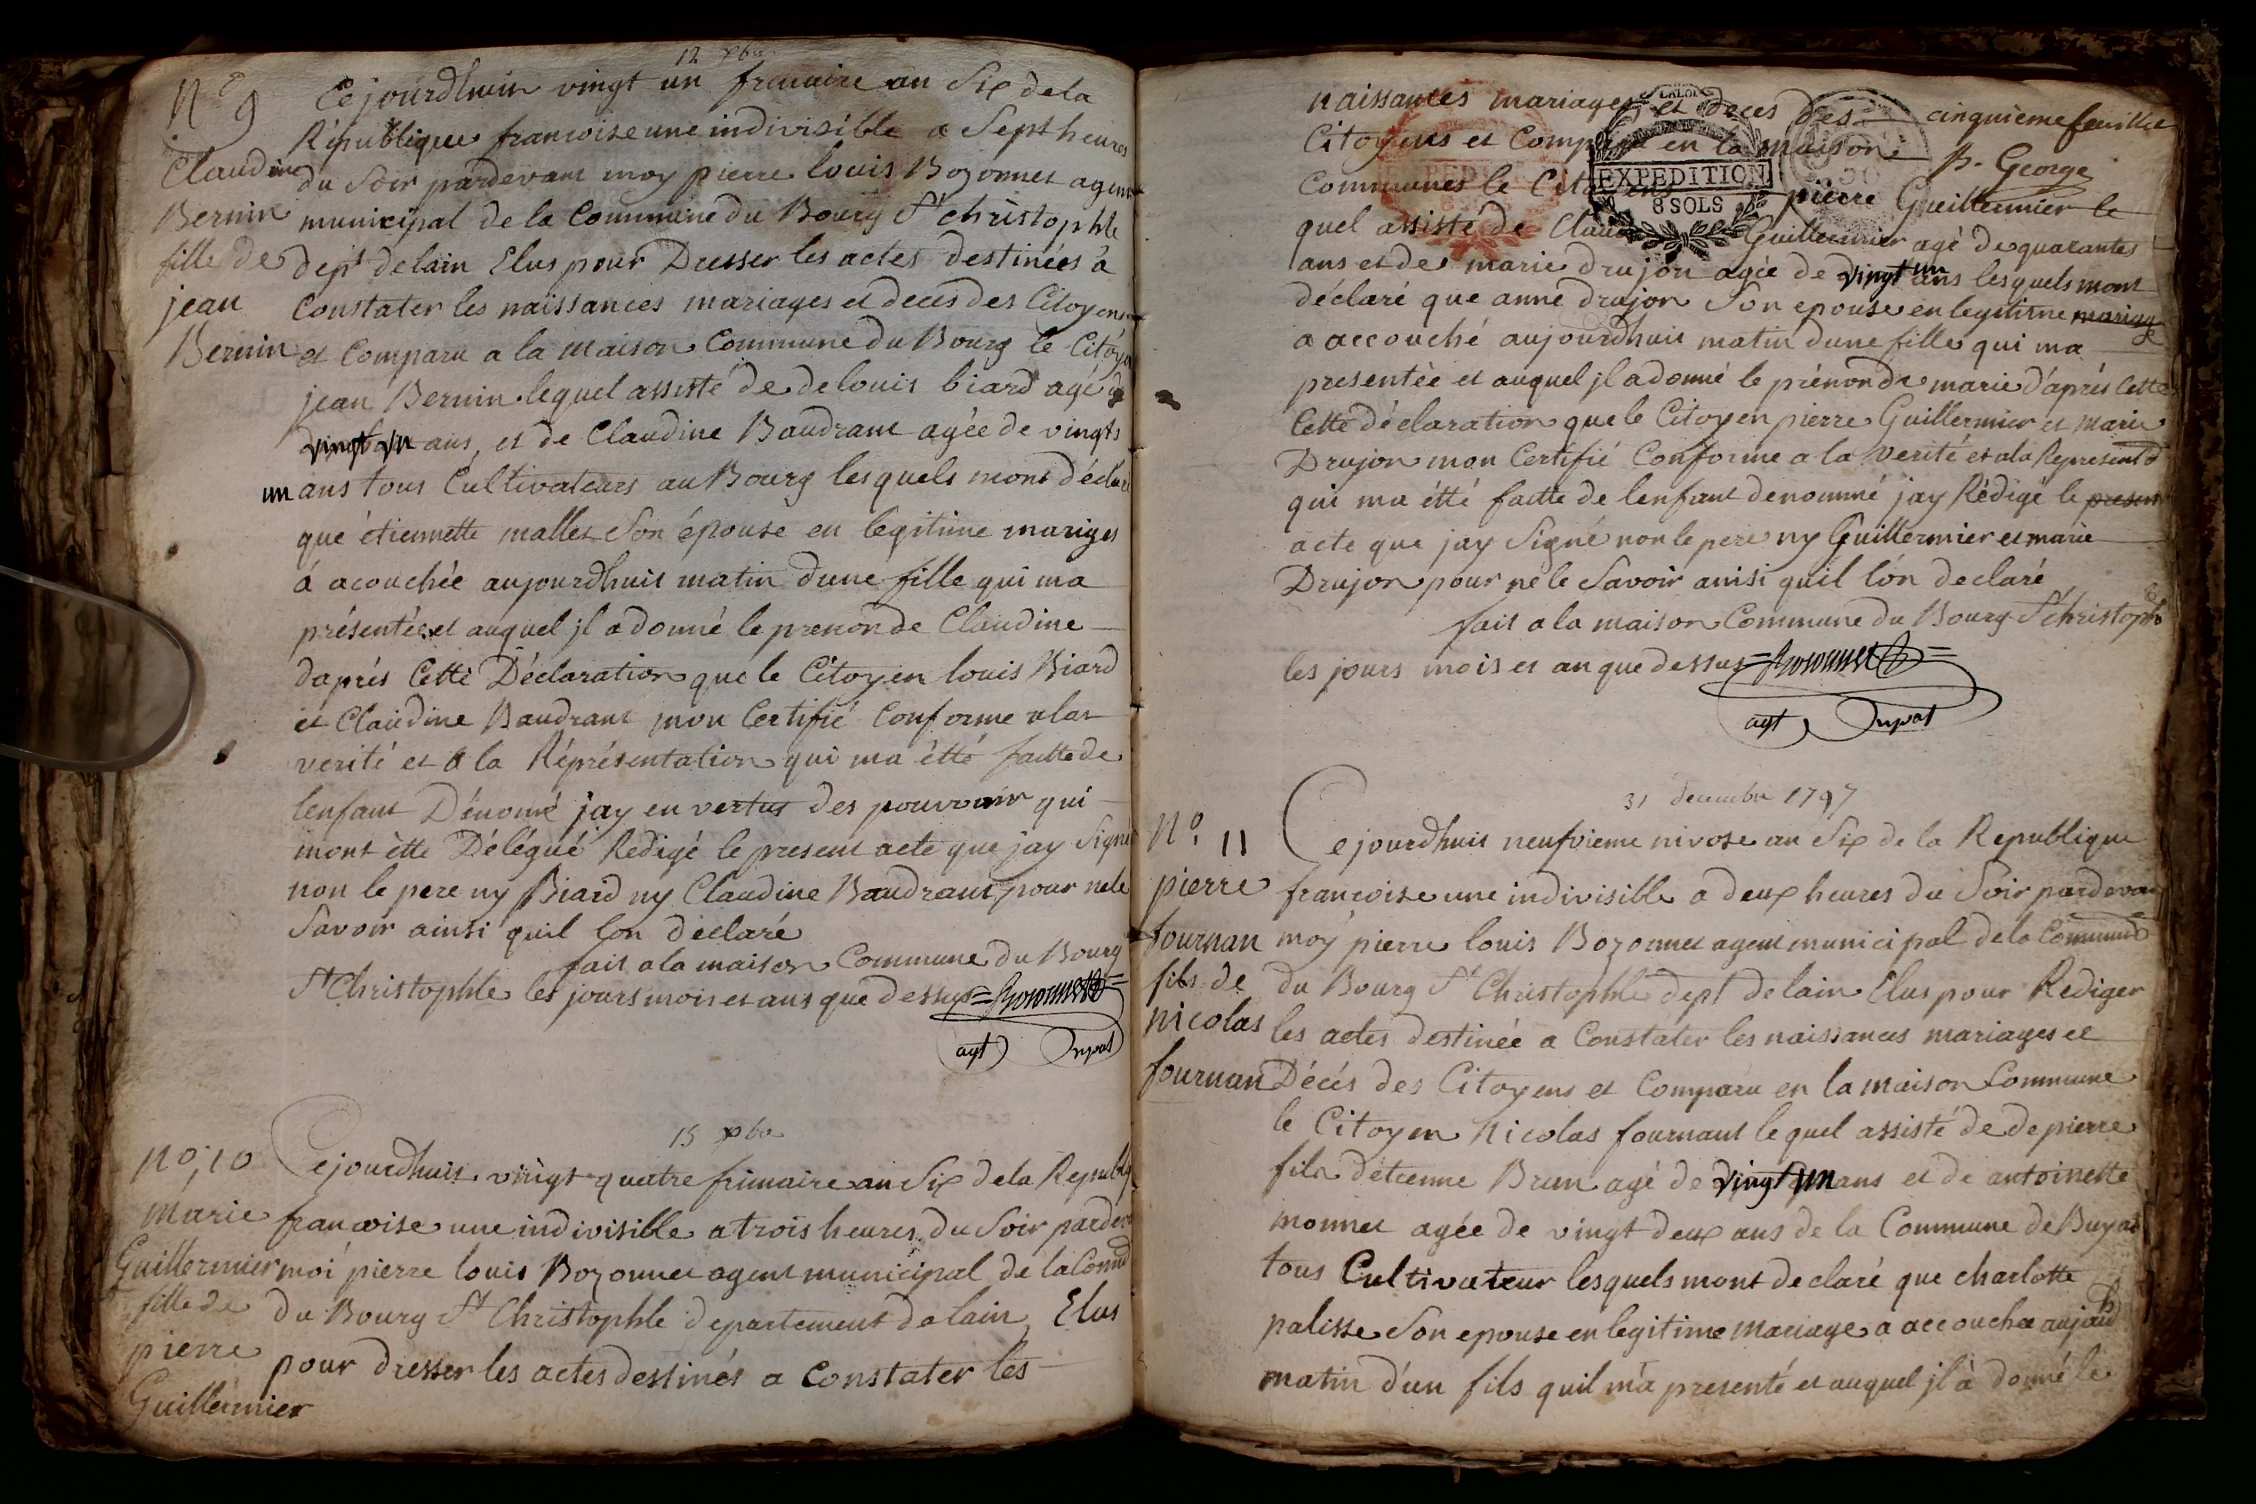 12 xbre
N° 9 Cejourdhuin vingt un frimaire an Six de la
République francoise une indivisible a Sept heures
Claudine du Soir pardevant moy pierre louis Bozonnet agent
Bernin municipal de la Commune du Bourg St christophle
fille de dept delain Elus pour Dresser les actes destinées à
jean Constater les naissances mariages et deces des Citoyens
Bernin et Comparu a la maison Commune du Bourg le Citoyen
jean Bernin lequel assisté de delouis biard agé de
vingt un ans, et de Claudine Baudrant agée de vingts
un ans tous Cultivateurs au Bourg lesquels mont déclaré
que étiennette mallet Son épouse en legitime mariges
à acouchée aujourdhuit matin dune fille qui ma
présentée et auquel jl a donné le prenon de Claudine
daprés Cette Déclaration que le Citoyen louis Biard
et Claudine Baudrant mon Certifié Conforme a la
verité et a la Réprésentation qui ma étté faitte de
lenfant Dénomé jay en vertus des pouvoir qui
mont étte Délégué Rédigé le present acte que jay Signé
non le pere ny Biard ny Claudine Baudrant pour nele
Savoir ainsi quil lon déclaré
fait a la maison Commune du Bourg
St Christophle les jours mois et ans que dessus = Bozonnet =
agt mpal
15 xbre
No, 10 Cejourdhuit vingt quatre frimaire an Six de la Republiq
marie francoise une indivisible a trois heures du Soir pardev
Guillermier moi pierre louis Bozonnet agent municipal de la Comm
fille de du Bourg St Christophle departement de lain Elus
pierre pour dresser les actes destinés a Constater les
Guillermier
naissances mariages et deces des cinquième feuillet
Citoyens et Comparu en la maison P. George
Communes le Citoyens pierre Guillermier le
EXPEDITION
8 SOLS
quel assisté de Claude Guillermier agé de quarantes
ans et de marie drujon agée de vingt un ans lesquels mont
déclaré que anne drujon Son epouse en legitime mariage
a accouché aujourdhuit matin dune fille qui ma
presentée et auquel jl a donné le prénon de marie d'aprés Cette
Cette déclaration que le Citoyen pierre Guillermier et marie
Drujon mon Certifié Conforme a la verité et ala Représent
qui ma étté faitte de lenfant denommé jay Rédigé le present
acte que jay Signé non le pere ny Guillermier et marie
Drujon pour ne le Savoir ainsi quil lon declaré
fait a la maison Commune du Bourg St christophle
les jours mois et an que dessus = Bozonnet =
agt mpal
31 decembre 1797
N° 11 Cejourdhuit neufvieme nivose an Six de la Republique
pierre francoise une indivisible a deux heures du Soir pardevan
fournan moy pierre louis Bozonnet agent municipal de la Commune
fils de du Bourg St Christophle dept delain Elus pour Rediger
nicolas les actes destinée a Constater les naissances mariages et
fournan Décés des Citoyens et Comparu en la maison Commune
le Citoyen Nicolas fournant lequel assisté de de pierre
fils détienne Brun agé de vingt un ans et de antoinette
monnet agée de vingt deux ans de la Commune de
tous Cultivateur lesquels mont declaré que charlotte
palisse Son epouse en legitime Mariage a accouchee aujourdh
matin d'un fils quil m'a presenté et auquel jl à donné le